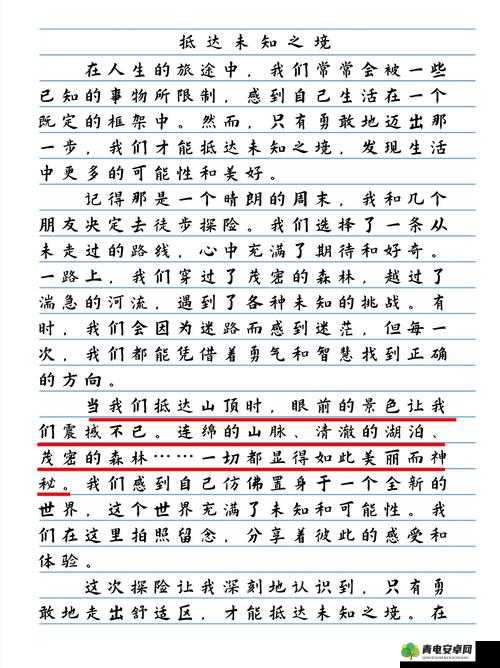 抵达未知之境
在人生的旅途中，我们常常会被一些
已知的事物所限制，感到自己生活在一个
既定的框架中。然而，只有勇敢地迈出那
一步，我们才能抵达未知之境，发现生活
中更多的可能性和美好。
记得那是一个晴朗的周末，我和几个
朋友决定去徒步探险。我们选择了一条从
未走过的路线，心中充满了期待和好奇。
一路上，我们穿过了茂密的森林，越过了
湍急的河流，遇到了各种未知的挑战。有
时，我们会因为迷路而感到迷茫，但每一
次，我们都能凭借着勇气和智慧找到正确
的方向。
当我们抵达山顶时，眼前的景色让我
们震撼不已。连绵的山脉、清澈的湖泊、
茂密的森林……一切都显得如此美丽而神
秘。我们感到自己仿佛置身于一个全新的
世界，这个世界充满了未知和可能性。我
们在这里拍照留念，分享着彼此的感受和
体验。
这次探险让我深刻地认识到，只有勇
敢地走出舒适区，才能抵达未知之境。在
青电安卓网